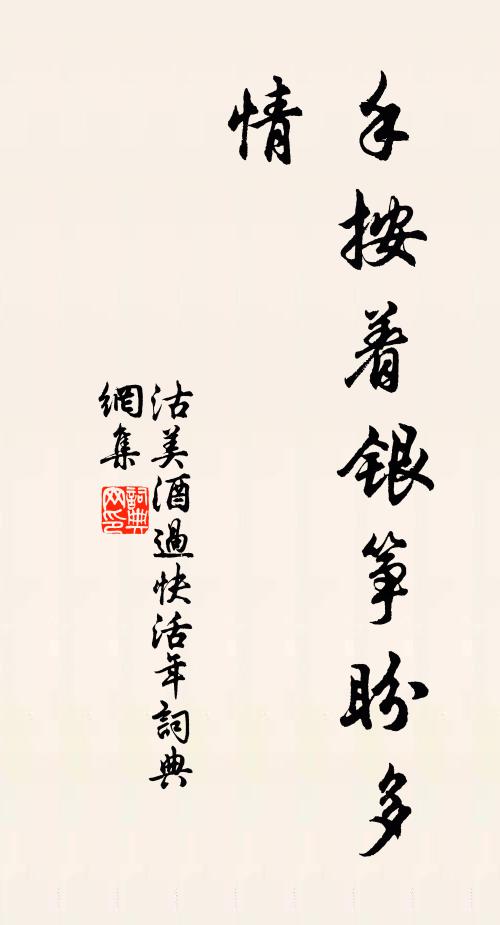 手按着銀筝盼多
情
沽美酒過快活年詞典
網集
詞典
网印